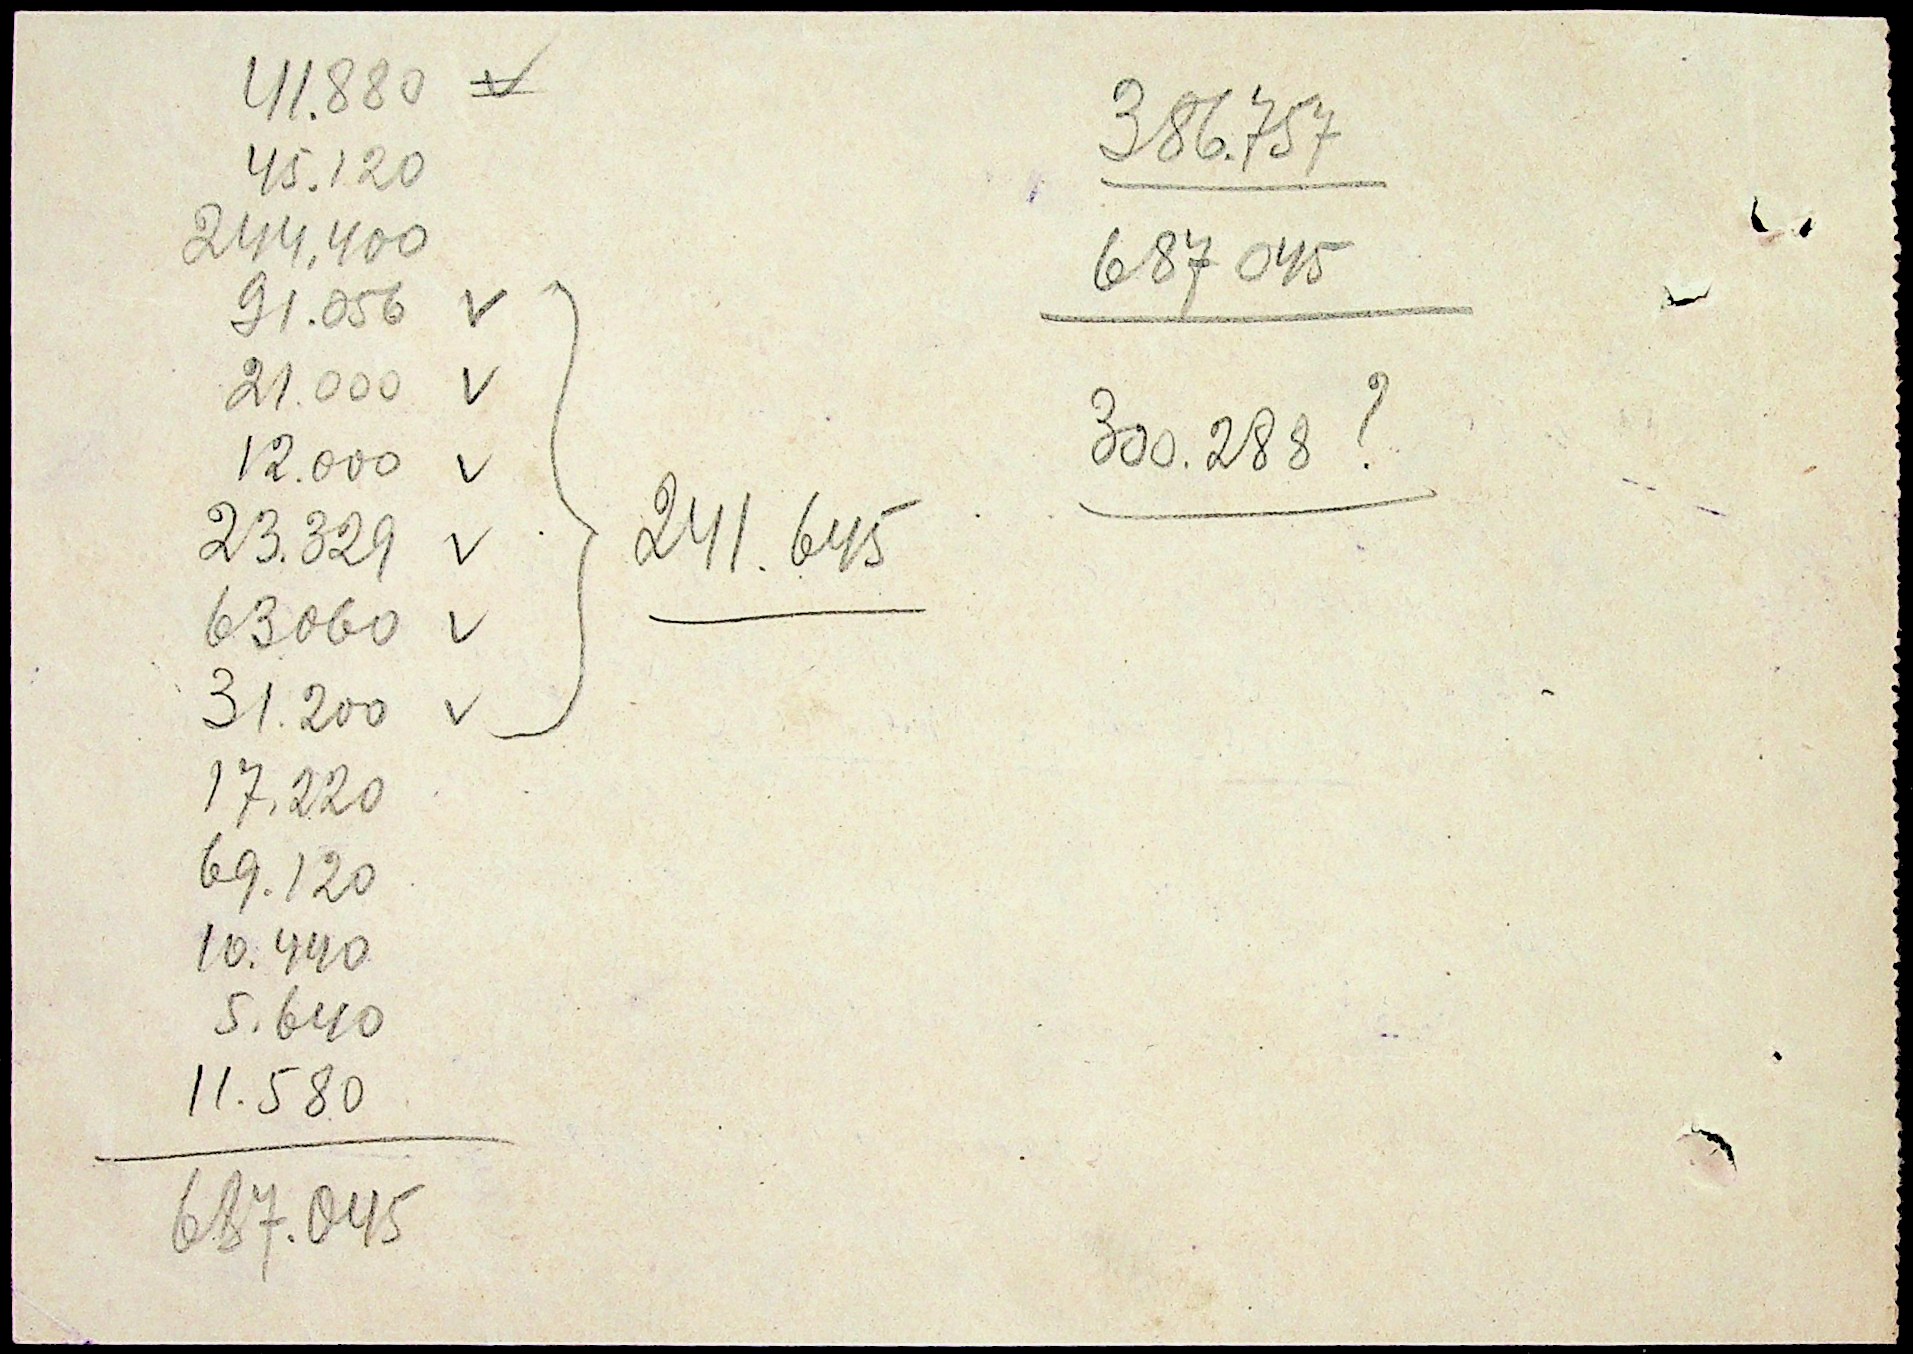 41.880 ✓
45.120
244.400
91.056 ✓
21.000 ✓
12.000 ✓
23.329 ✓
63060 ✓
31.200 ✓
17.220
69.120
10.440
5.640
11.580
687.045
241.645
386.757
687 045
300.288 ?